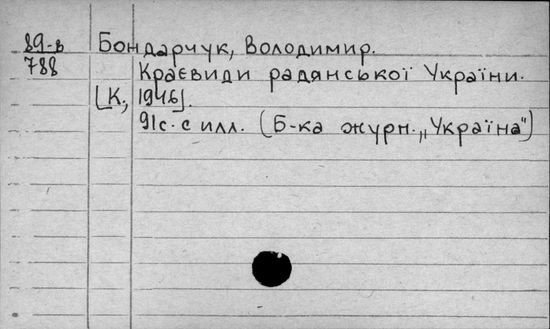 89-в Бондарчук, Володимир.
788 Краєвиди радянської України.
[К, 1946].
91с. с илл. (Б-ка журн. „Україна")